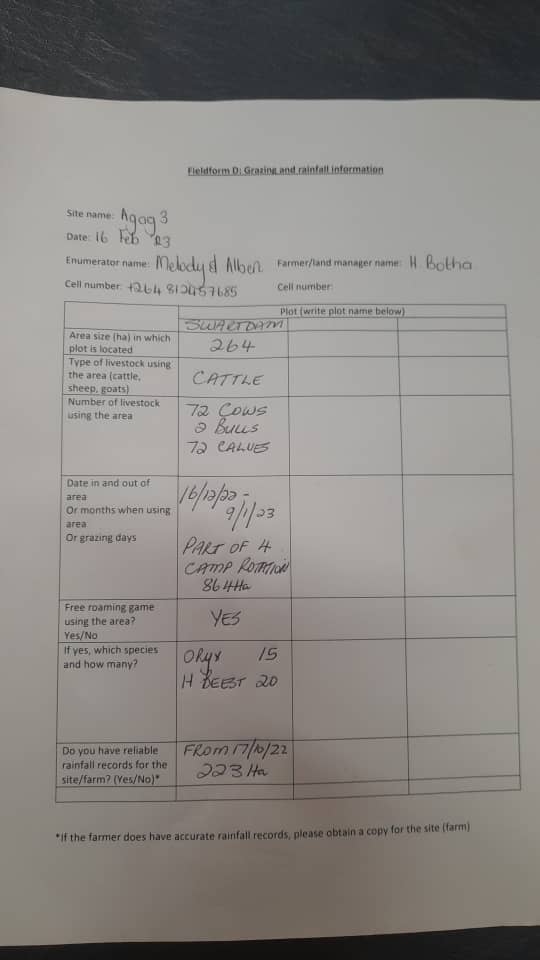 Fieldform D: Grazing and rainfall information
Site name: Agag 3
Date: 16 Feb '23
Enumerator name: Melody & Alben Farmer/land manager name: H. Botha
Cell number: +264 812457685 Cell number:
Plot (write plot name below)
SWARTDAM
Area size (ha) in which
plot is located
264
Type of livestock using
the area (cattle,
sheep, goats)
CATTLE
Number of livestock
using the area
72 COWS
2 BULLS
72 CALVES
Date in and out of
area
Or months when using
area
Or grazing days
16/12/22 -
9/1/23
PART OF 4
CAMP ROTATION
864Ha
Free roaming game
using the area?
Yes/No
YES
If yes, which species
and how many?
ORyx 15
H BEEST 20
Do you have reliable
rainfall records for the
site/farm? (Yes/No)*
FROM 17/10/22
223 Ha
*If the farmer does have accurate rainfall records, please obtain a copy for the site (farm)